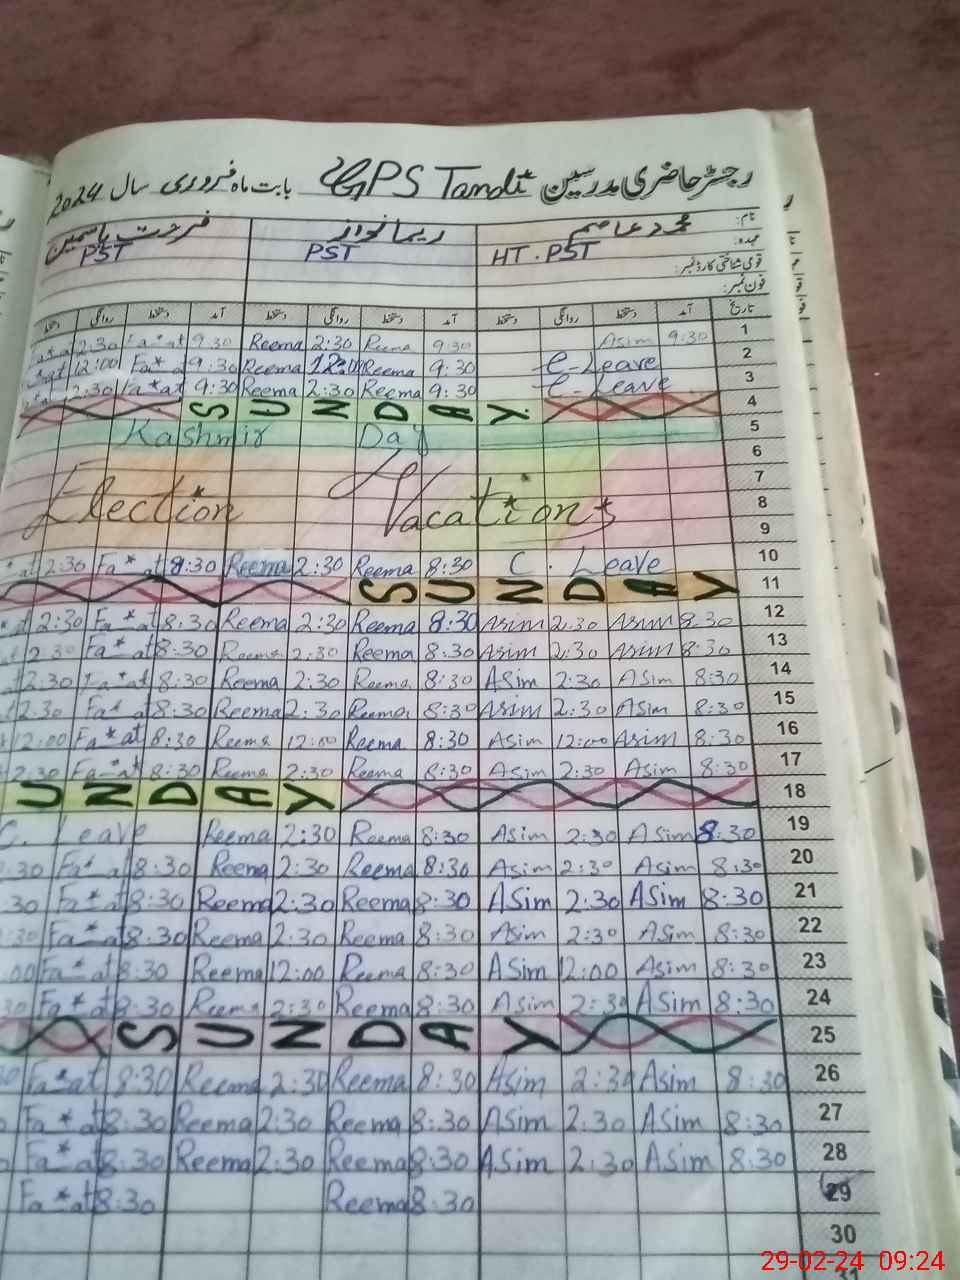 رجسٹر حاضری مدرسین GPS Tandi بابت ماہ فروری سال 2024
نام: محمد عاصم ریما نواز فرحت یاسمین
عہدہ: HT. PST PST PST
قومی شناختی کارڈ نمبر:
فون نمبر:
تاریخ آمد دستخط روانگی دستخط آمد دستخط روانگی دستخط آمد دستخط روانگی دستخط
2:30 Fa*at 9:30 Reema 2:30 Reema 9:30 Asim 9:30 1
12:00 Fa*at 9:30 Reema 12:00 Reema 9:30 C-Leave 2
2:30 Fa*at 9:30 Reema 2:30 Reema 9:30 C-Leave 3
SUNDAY 4
Kashmir Day 5
6
Election Vacations 7
8
9
2:30 Fa*at 8:30 Reema 2:30 Reema 8:30 C. Leave 10
SUNDAY 11
2:30 Fa*at 8:30 Reema 2:30 Reema 8:30 Asim 2:30 Asim 8:30 12
2:30 Fa*at 8:30 Reema 2:30 Reema 8:30 Asim 2:30 Asim 8:30 13
2:30 Fa*at 8:30 Reema 2:30 Reema 8:30 Asim 2:30 Asim 8:30 14
2:30 Fa*at 8:30 Reema 2:30 Reema 8:30 Asim 2:30 Asim 8:30 15
12:00 Fa*at 8:30 Reema 12:00 Reema 8:30 Asim 12:00 Asim 8:30 16
2:30 Fa*at 8:30 Reema 2:30 Reema 8:30 Asim 2:30 Asim 8:30 17
UNDAY 18
C. Leave Reema 2:30 Reema 8:30 Asim 2:30 Asim 8:30 19
:30 Fa*at 8:30 Reema 2:30 Reema 8:30 Asim 2:30 Asim 8:30 20
:30 Fa*at 8:30 Reema 2:30 Reema 8:30 Asim 2:30 Asim 8:30 21
:30 Fa*at 8:30 Reema 2:30 Reema 8:30 Asim 2:30 Asim 8:30 22
:00 Fa*at 8:30 Reema 12:00 Reema 8:30 Asim 12:00 Asim 8:30 23
30 Fa*at 8:30 Reema 2:30 Reema 8:30 Asim 2:30 Asim 8:30 24
SUNDAY 25
Fa*at 8:30 Reema 2:30 Reema 8:30 Asim 2:30 Asim 8:30 26
Fa*at 8:30 Reema 2:30 Reema 8:30 Asim 2:30 Asim 8:30 27
Fa*at 8:30 Reema 2:30 Reema 8:30 Asim 2:30 Asim 8:30 28
Fa*at 8:30 Reema 8:30 29
30
31
29-02-24 09:24